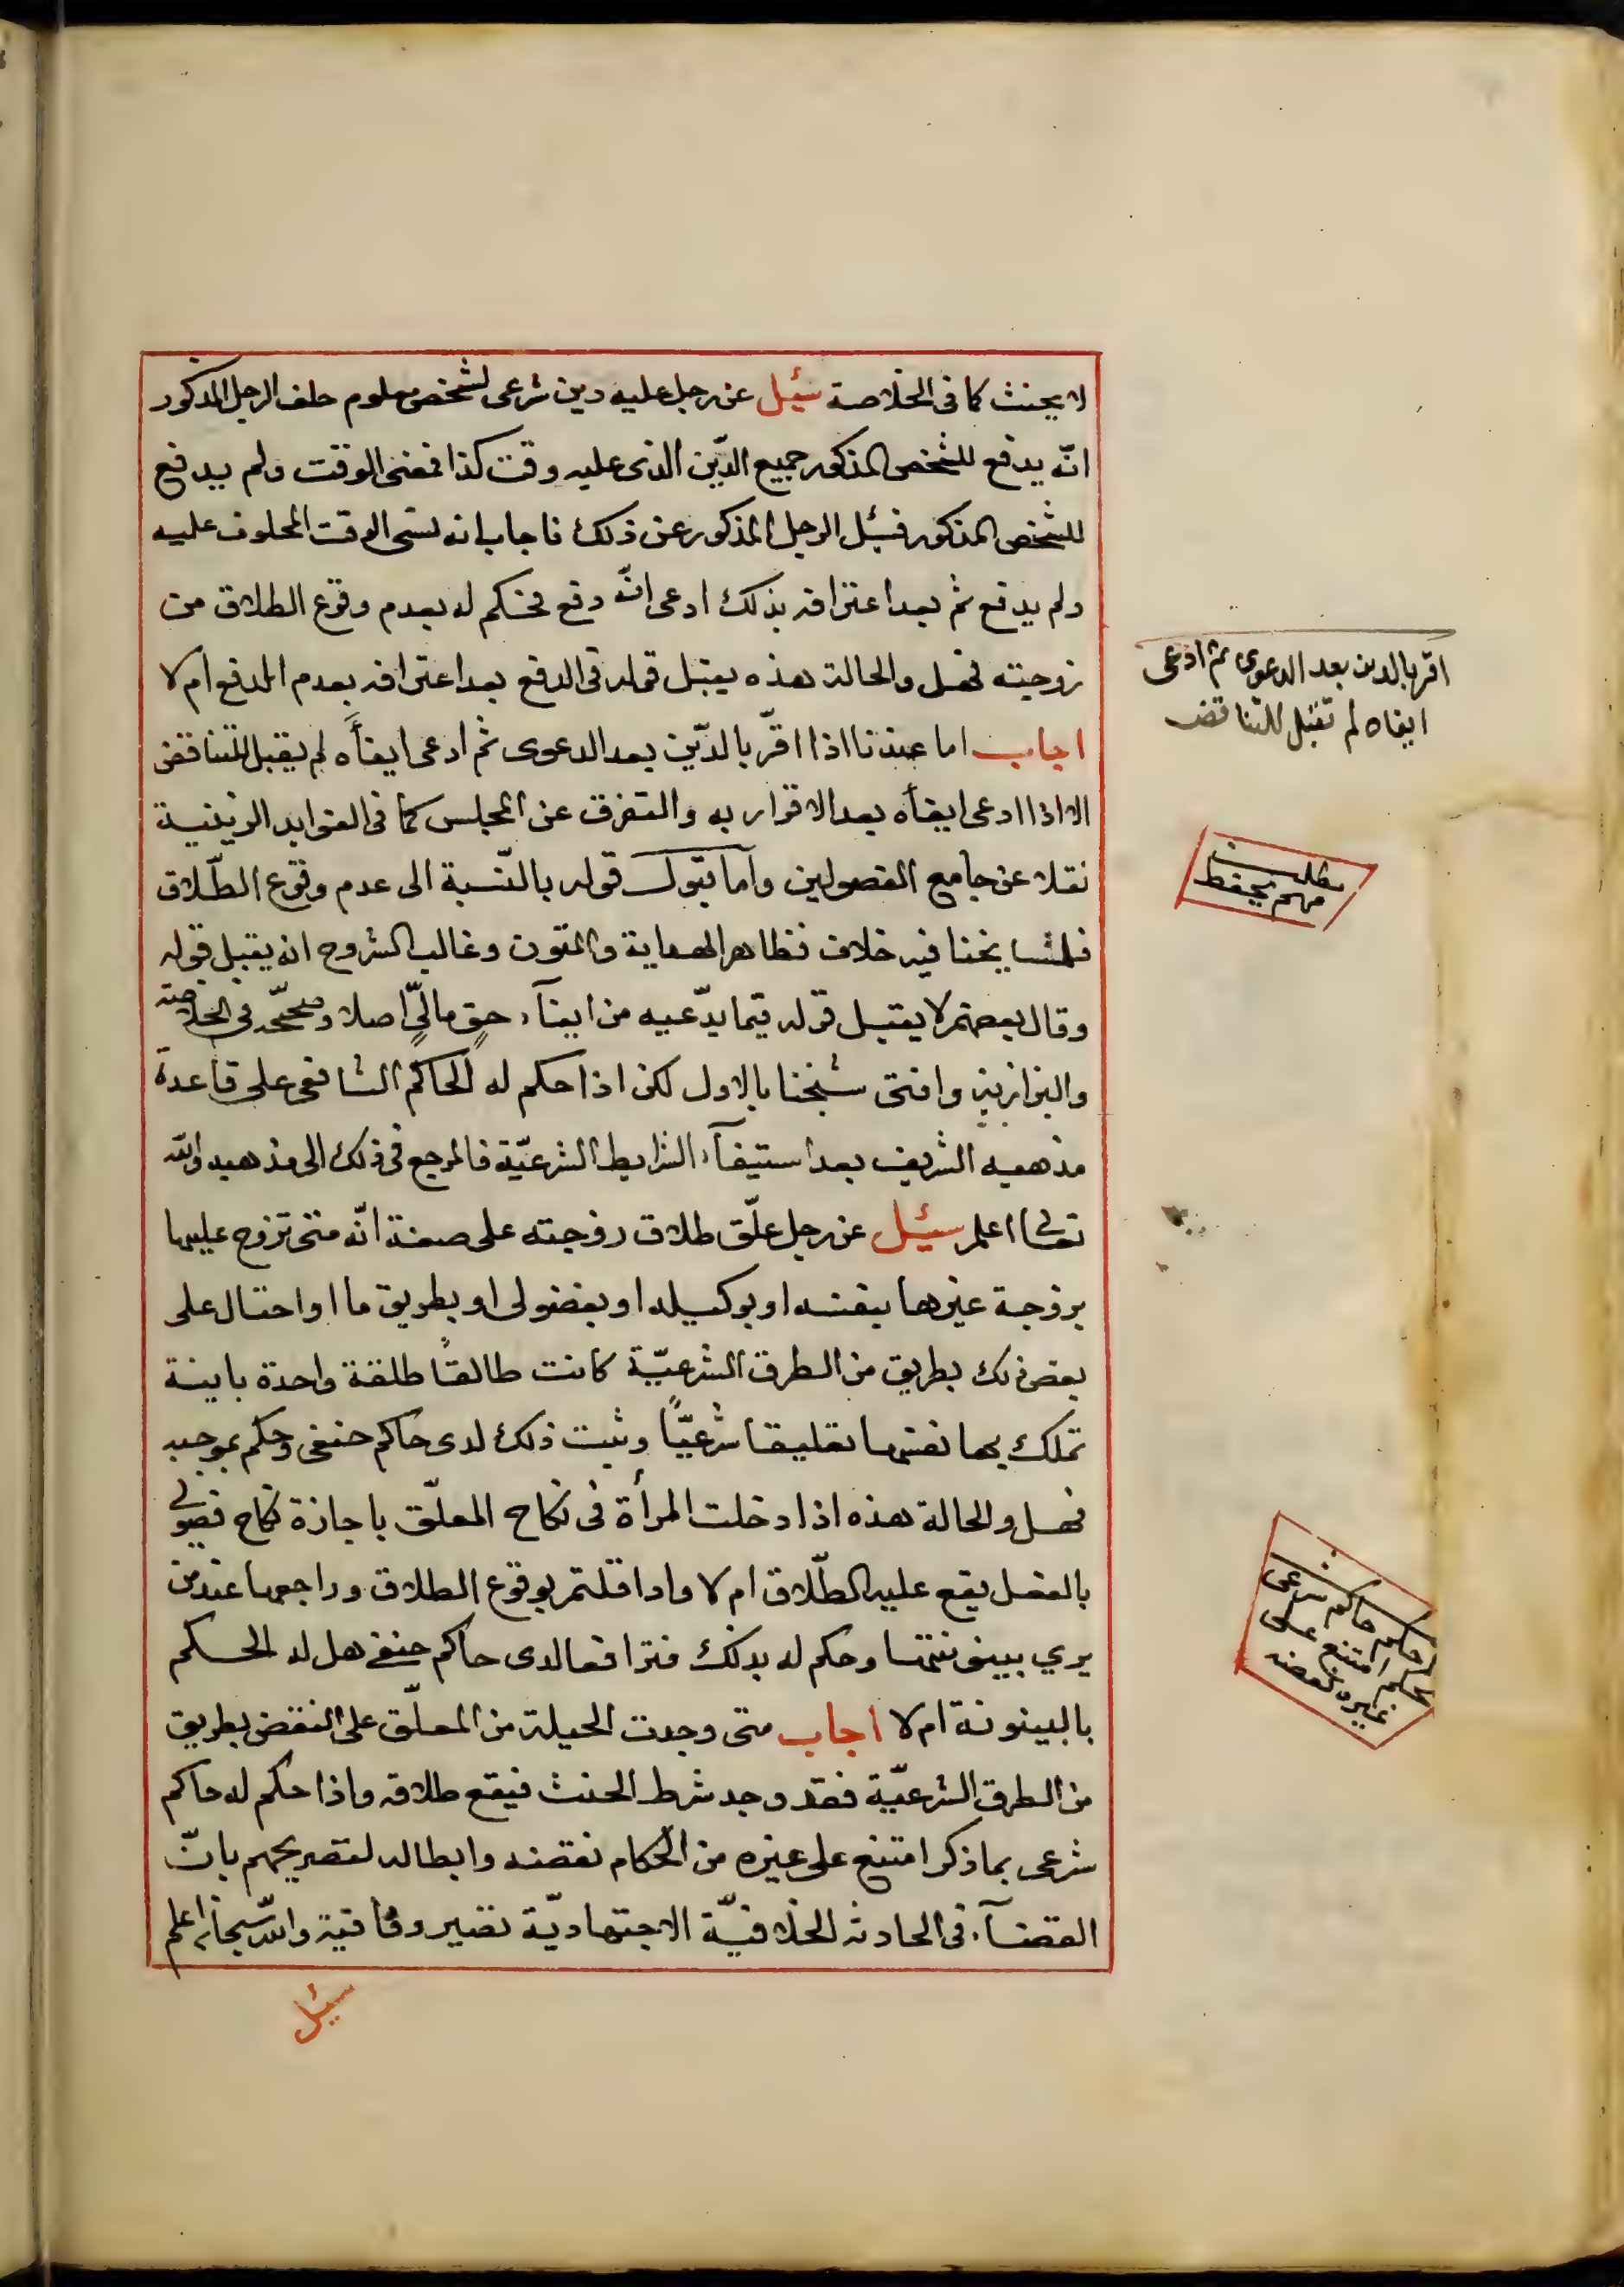 لا يحنث كما فى الخلاصة سئيل عن رجل عليه دين شرعى لشخص معلوم حلف الرجل المذكور
انّه يدفع للشخص المذكور جميع الدّين الذى عليه وقت كذا فمضى الوقت ولم يدفع
للشخص المذكور فسئل الرجل المذكور عن ذلك فاجاب انه نسى الوقت المحلوف عليه
ولم يدفع ثم بعد اعترافه بذلك ادعى انّه دفع فحكم له بعدم وقوع الطلاق من
زوجيته فهل والحالة هذه يقبل قوله فى الدفع بعد اعترافه بعدم الدفع ام لا
اجاب اما عندنا اذا اقرّ بالدّين بعد الدعوى ثم ادعى ايفآءه لم يقبل للتناقض
الا اذا ادعى ايفآه بعد الاقرار به والتفرق عن المجلس كما فى الفوايد الزينية
نقلا عن جامع الفصولين وآما قبول قوله بالنّسبة الى عدم وقوع الطّلاق
فلمشايخنا فيه خلاف فظاهر الهداية والمتون وغالب الشروح انه يقبل قوله
وقال بعضهم لا يقبل قوله فيما يدّعيه من ايفآء حقٍ مالىٍّ اصلا وصحّحه فى الخلاصة
والبزازيه وافتى شيخنا بالاول لكن اذا حكم له الحاكم الشافعى على قاعدة
مذهبه الشريف بعد استيفآء الشرايط الشرعيّة فالمرجع فى ذلك الى مذهبه والله
تعالى اعلم سئيل عن رجل علّق طلاق زوجته على صفة انّه متى تزوج عليها
بزوجة غيرها بنفسه او بوكيله او بفضولى او بطريق ما او احتال على
بعض ذلك بطريق من الطرق الشرعيّة كانت طالقًا طلقة واحدة باينة
تملك بها نفسها تعليقا شرعيًّا وثبت ذلك لدى حاكم حنفى وحكم بموجبه
فهل والحالة هذه اذا دخلت المرأة فى نكاح المعلّق باجازة نكاح فضولى
بالفعل يقع عليه الطّلاق ام لا واذا قلتم بوقوع الطلاق وراجعها عند من
يري بينونتها وحكم له بذلك فترافعا لدى حاكم حنفى هل له الحكم
بالبينونة ام لا اجاب متى وجدت الحيلة من المعلّق على النقض بطريق
من الطرق الشرعيّة فقد وجد شرط الحنث فيقع طلاقه واذا حكم له حاكم
شرعى بما ذكر امتنع على غيره من الحكام نقضه وابطاله لتصريحهم بانّ
القضآء فى الحادثه الخلافيّة الاجتهاديّة تصير وفاقية والله سبحانه اعلم
سئيل
اقر بالدين بعد الدعوى ثم ادعى
ايفاه لم تقبل للتناقض
مطلب
مهم يحفظ
حكم حاكم شرعى
بحكم امتنع على
غيره نقضه